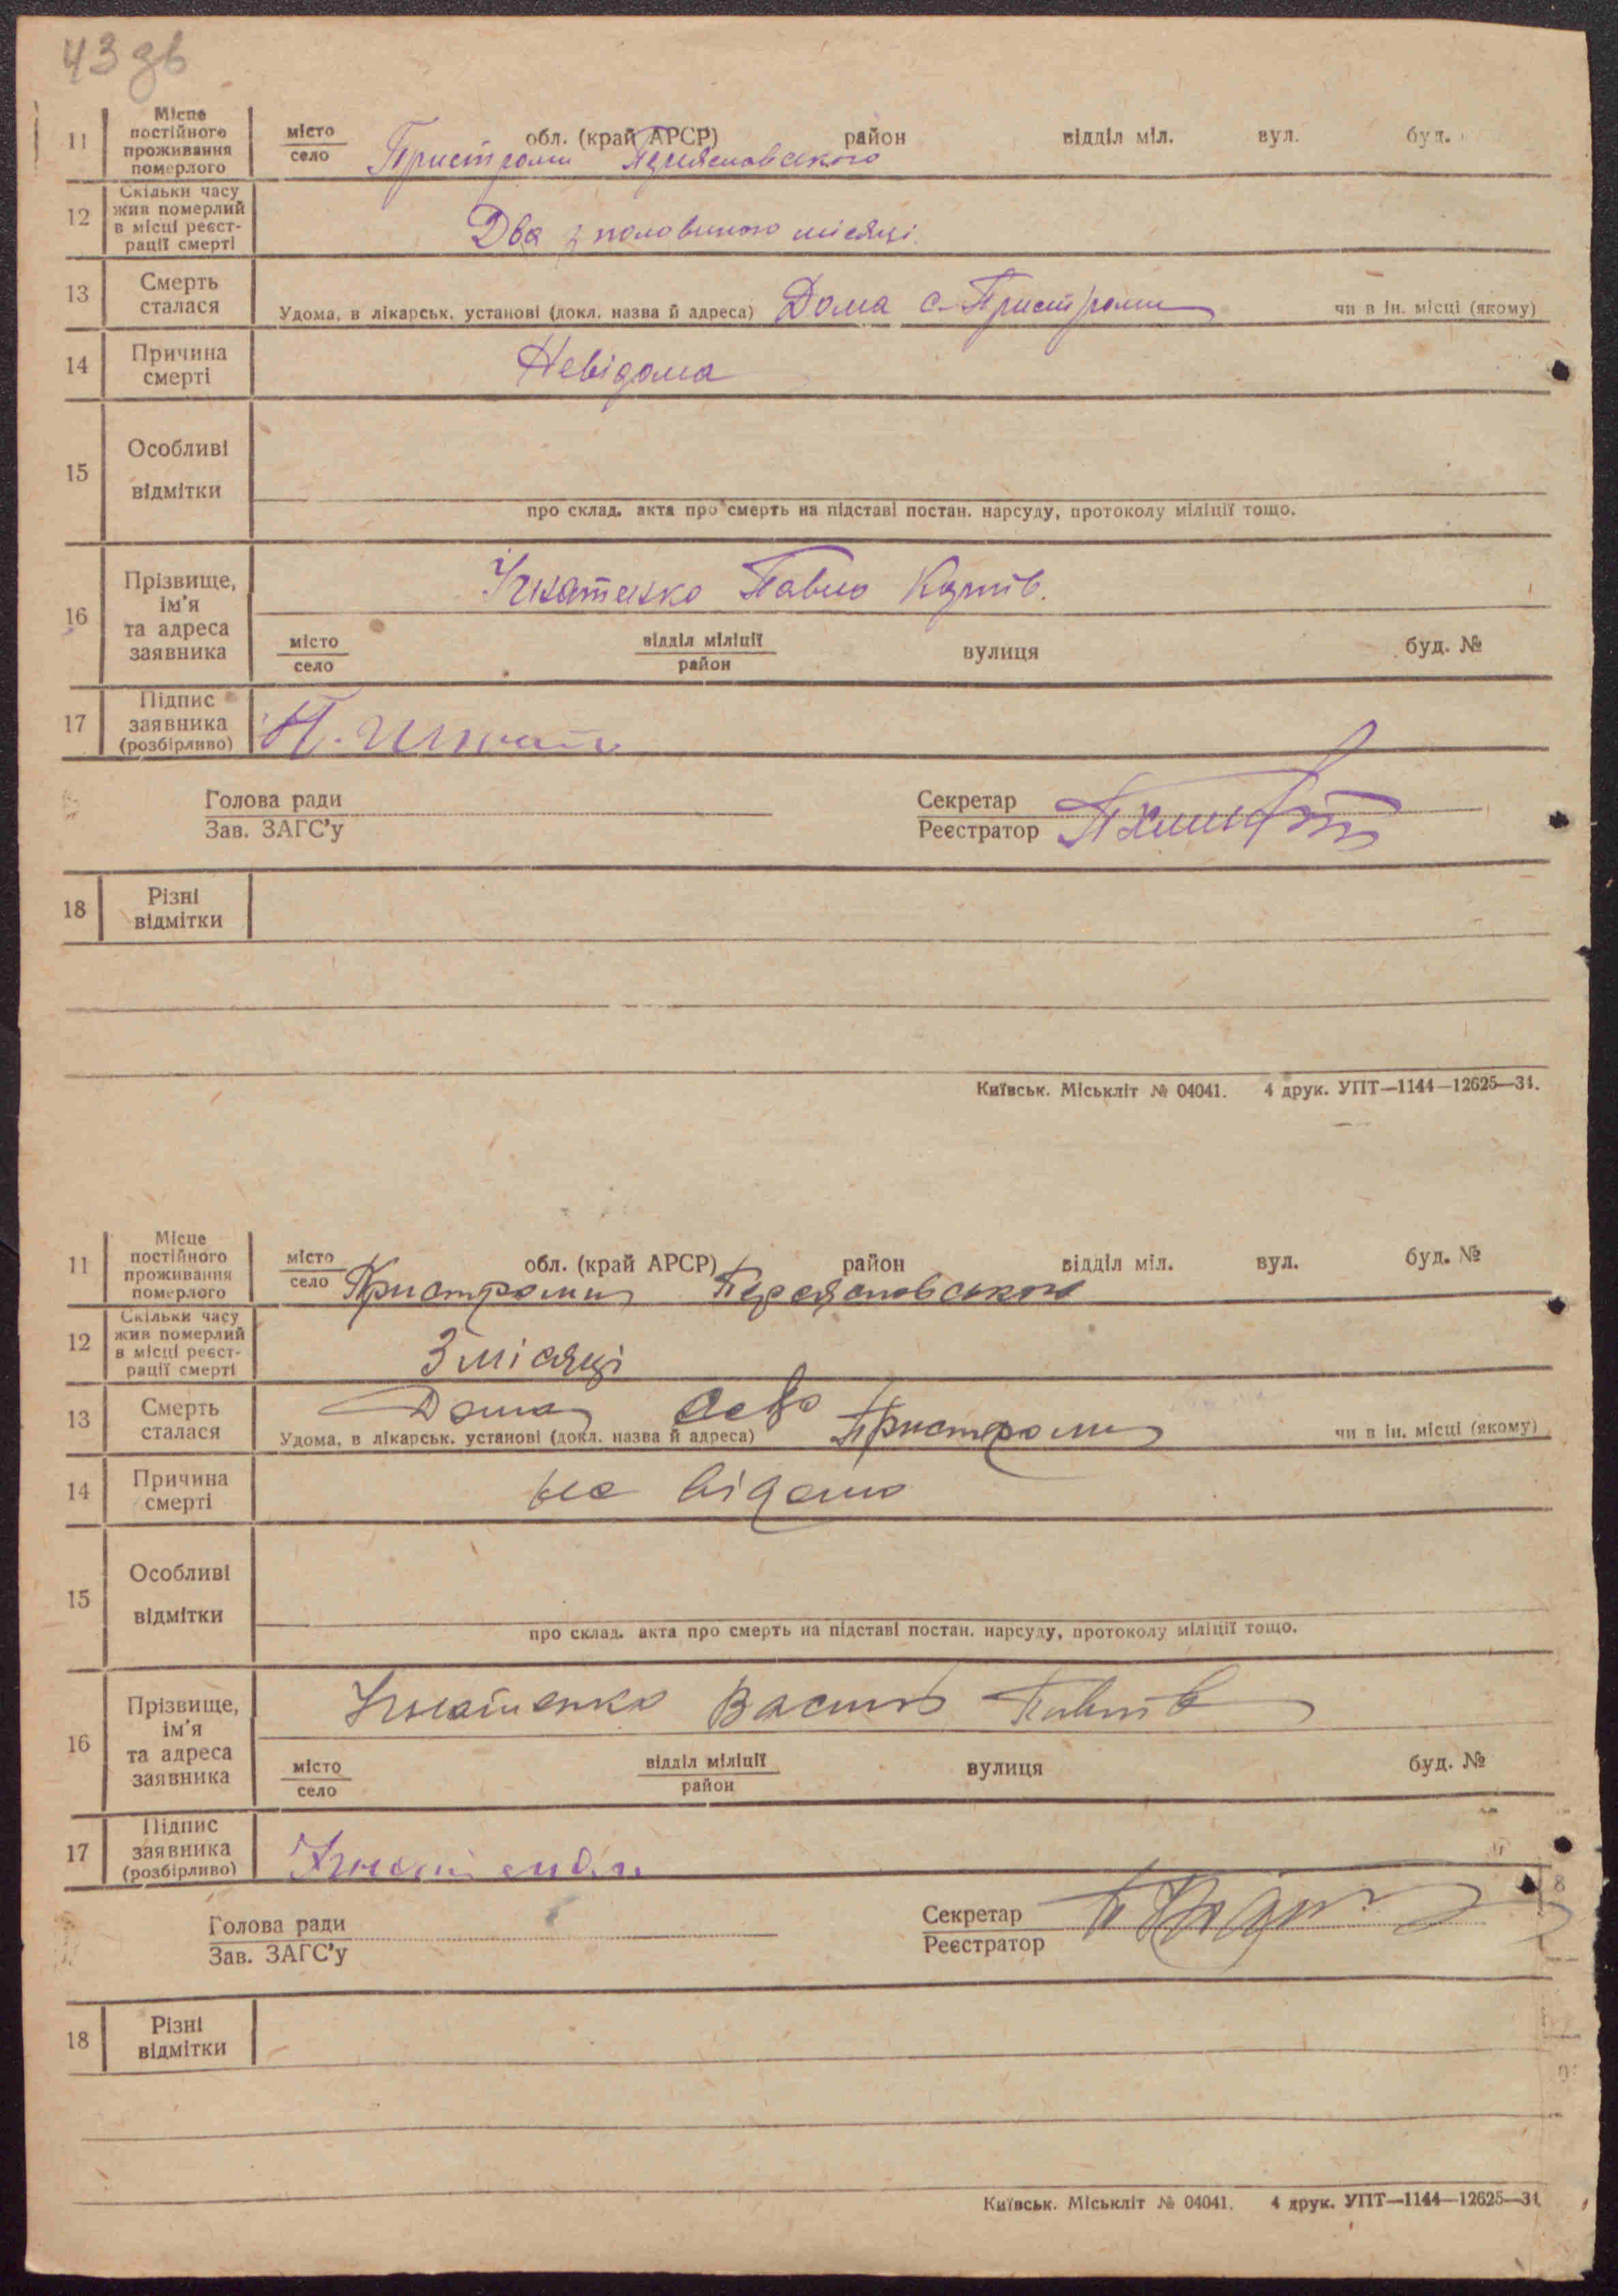 43 зв
11
Місце постійного проживання померлого
місто
село
обл. (край АРСР) район відділ міл. вул. буд.
Пристроми
12
Скільки часу жив померлий в місці реєстрації смерті
Два з половиною місяці
13
Смерть сталася
Удома, в лікарськ. установі (докл. назва й адреса) Дома с. Пристроми чи в ін. місці (якому)
14
Причина смерті
Невідома
15
Особливі відмітки
про склад. акта про смерть на підставі постан. нарсуду, протоколу міліції тощо.
16
Прізвище, ім'я та адреса заявника
Ігнатенко Павло
місто
село
відділ міліції
район
вулиця буд. №
17
Підпис заявника (розбірливо)
Голова ради
Зав. ЗАГС'у
Секретар
Реєстратор
18
Різні відмітки
Київськ. Міськліт № 04041. 4 друк. УПТ—1144—12625—31.
11
Місце постійного проживання померлого
місто
село
обл. (край АРСР) район відділ міл. вул. буд. №
Пристроми Переяславського
12
Скільки часу жив померлий в місці реєстрації смерті
3 місяці
13
Смерть сталася
Дома село Пристроми
Удома, в лікарськ. установі (докл. назва й адреса) чи в ін. місці (якому)
14
Причина смерті
не відомо
15
Особливі відмітки
про склад. акта про смерть на підставі постан. нарсуду, протоколу міліції тощо.
16
Прізвище, ім'я та адреса заявника
Ігнатенко Василь
місто
село
відділ міліції
район
вулиця буд. №
17
Підпис заявника (розбірливо)
Голова ради
Зав. ЗАГС'у
Секретар
Реєстратор
18
Різні відмітки
Київськ. Міськліт № 04041. 4 друк. УПТ—1144—12625—31.